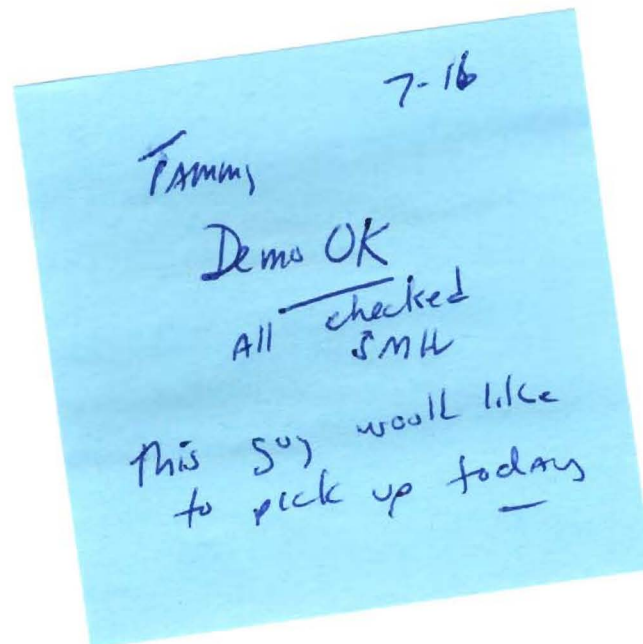 7-16
Tammy
Demo OK
All checked
SMH
This guy would like
to pick up today